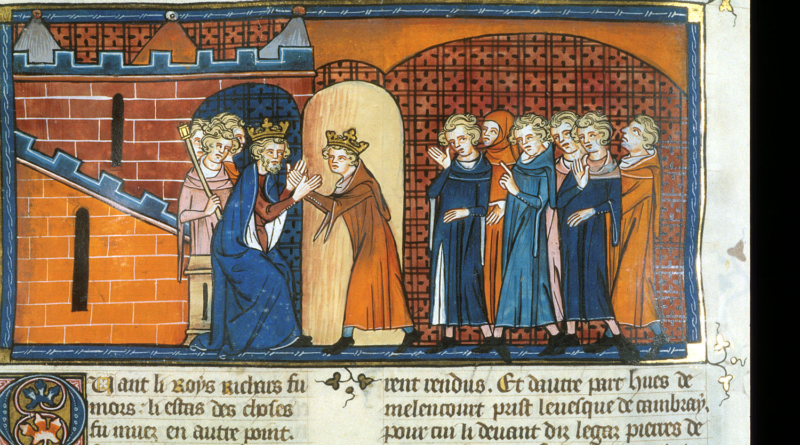 Quant li Roys Richars fu
mors. li estas des choses
fu muez en autre point.
rent rendus. Et dautre part hues de
melencourt prist levesque de cambray,
pour cui li devant diz legaz pierres de